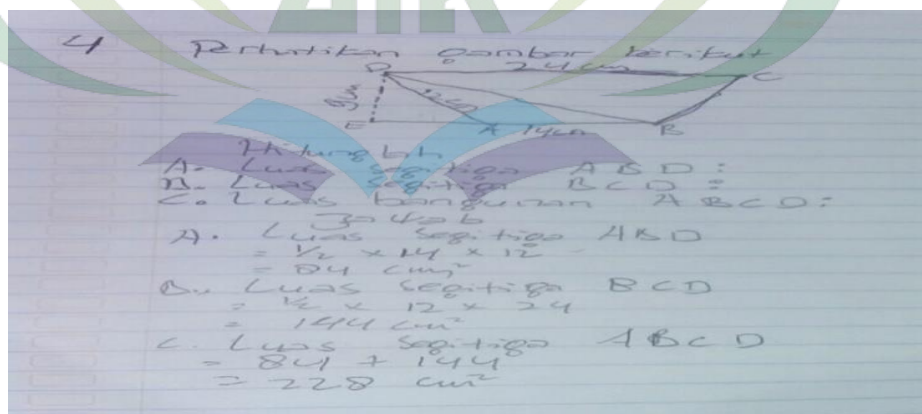 4 Perhatikan gambar berikut
24 cm
D C
9 cm 12 cm
E A 14 cm B
Hitunglah
A. Luas segitiga ABD :
B. Luas segitiga BCD :
C. Luas bangunan ABCD :
Jawab
A. Luas segitiga ABD
= 1/2 x 14 x 12
= 84 cm²
B. Luas segitiga BCD
= 1/2 x 12 x 24
= 144 cm²
C. Luas segitiga ABCD
= 84 + 144
= 228 cm²